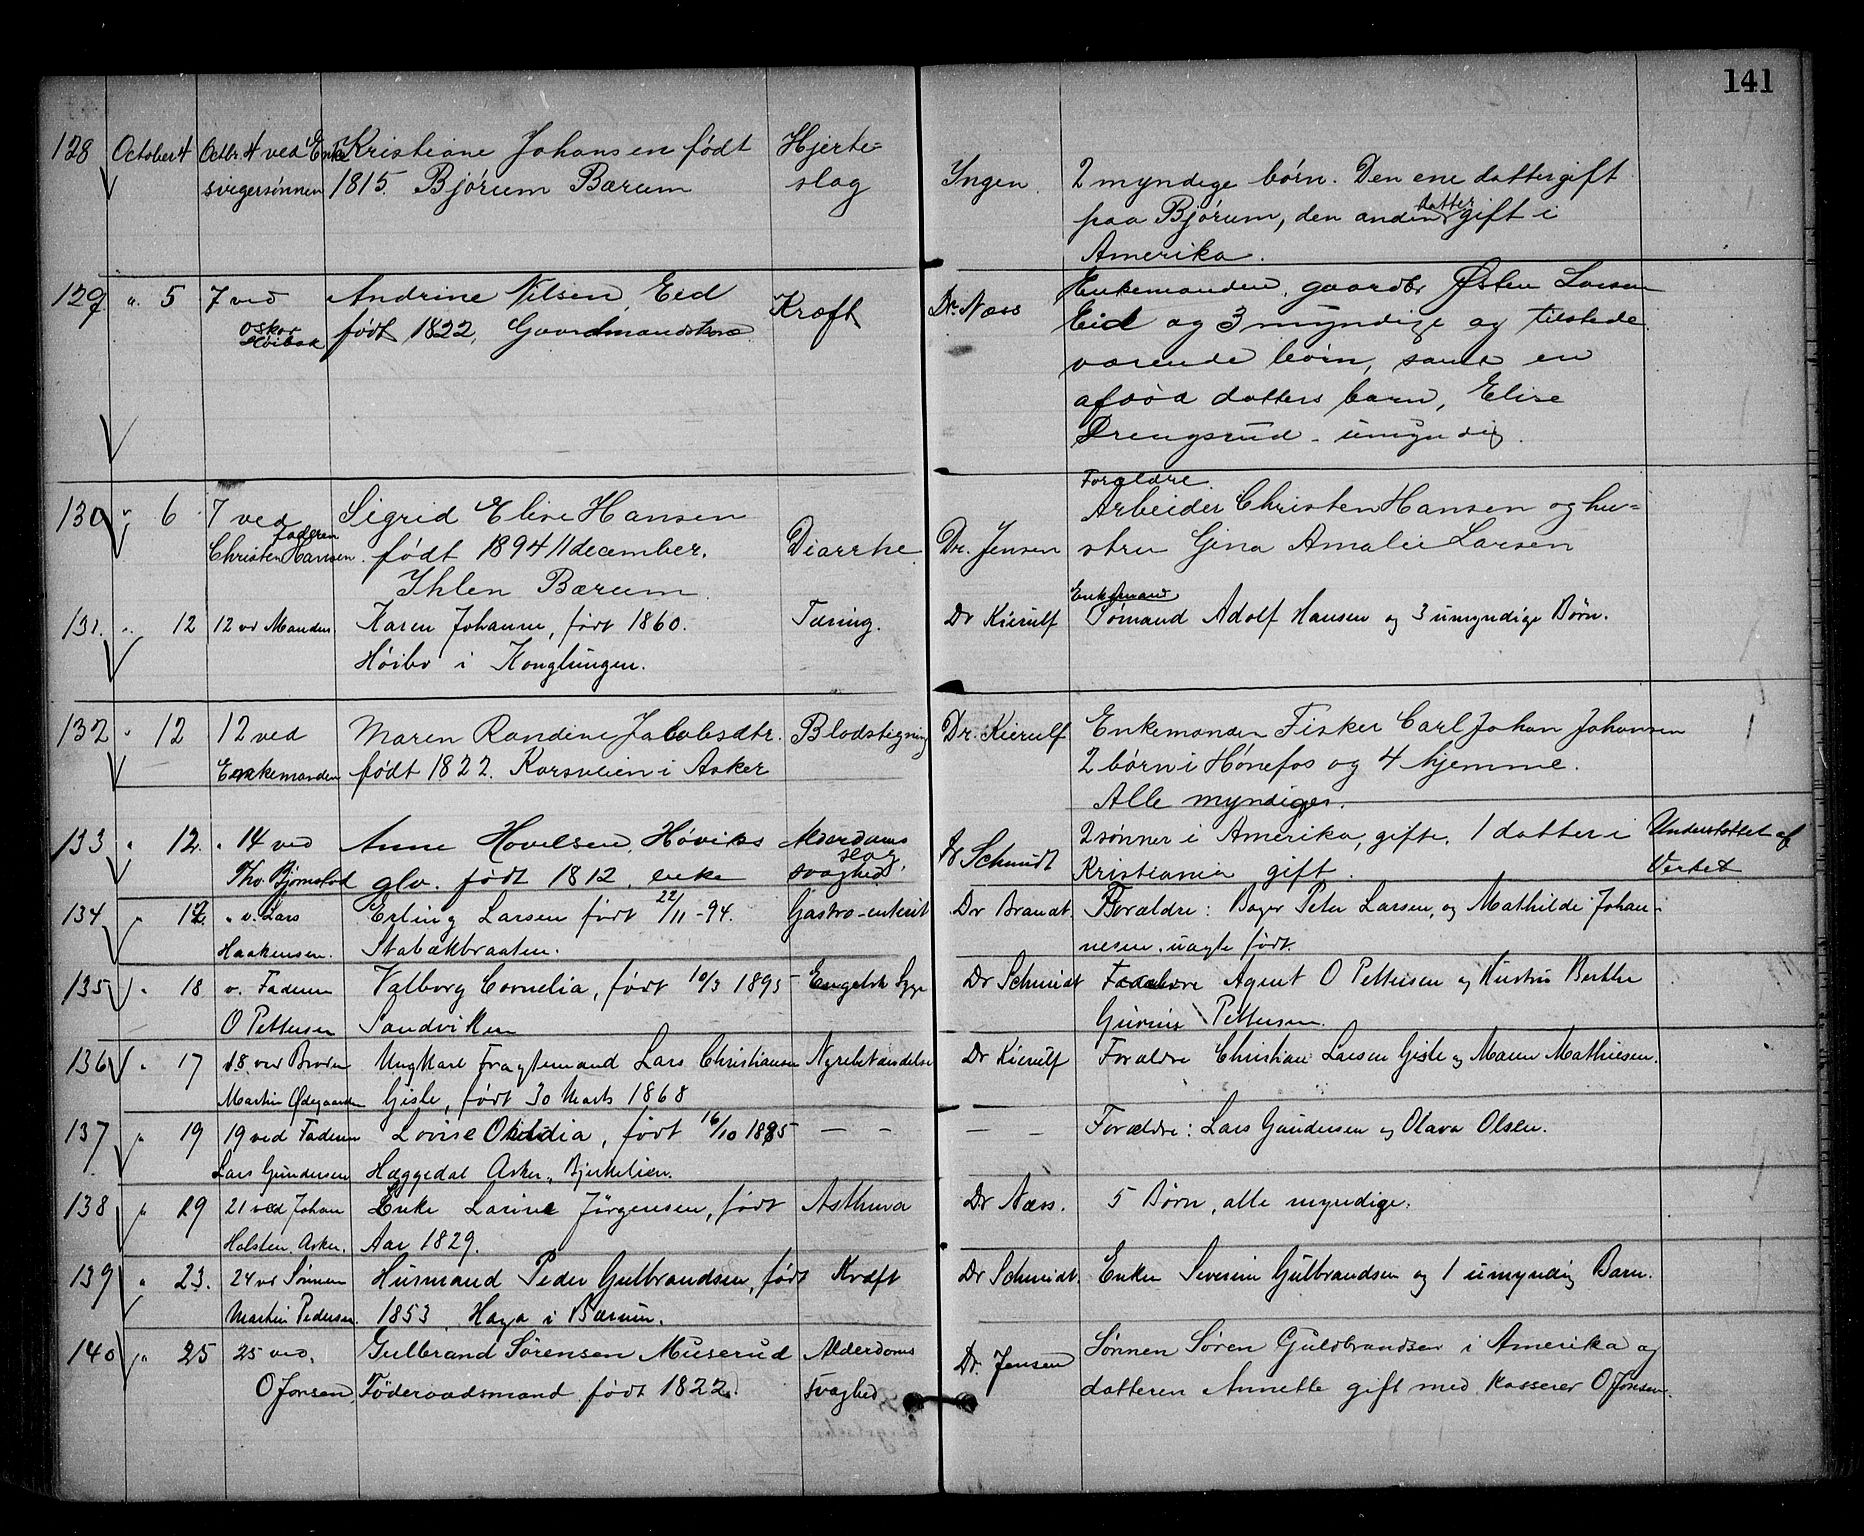 141
128 October 4 Octbr. 4 ved Kristiane Johansen født Hjerte=
svigersønnen 1815. Bjørum Bærum slag Ingen. 2 myndige børn. Den ene datter gift
paa Bjørum, den anden datter gift i
Amerika.
129 " 5 7 ved Andrine Nilsen, Eid Kræft Dr. Næss Enkemanden, gaardbr Østen Larsen
Oskar født 1822, Gaardmandskone Eid og 3 myndige og tilstede
værende børn, samt en
afdød datters barn, Elise
Drengsrud - umyndig.
130 " 6 7 ved Sigrid Elise Hansen Forældre.
faderen Arbeider Christen Hansen og hu=
Christen Hansen født 1894 11 december. Diarrhe Dr. Jensen stru Gina Amalie Larsen
Ihlen Bærum.
131. " 12 12 vd Manden Karen Johanne, født 1860. Tæring. Dr Kierulf Enkemand Sømand Adolf Hansen og 3 umyndige Børn.
Høibo i Konglungen.
132 " 12 12 ved Maren Randine Jakobsdtr. Blodstigning Dr. Kierulf Enkemanden Fisker Carl Johan Johansen
Enkemanden født 1822. Korsveien i Asker 2 børn i Hønefos og 4 hjemme.
Alle myndiger.
133 " 12. " 14 ved Anne Hovelsen, Høviks Alderdoms Dr Schmidt 2 sønner i Amerika, gifte, 1 datter i Understøttet af
Tho. Bjørnstad glv. født 1812, enke slag svaghed. Kristiania gift. Verket
134 " 12 " v. Lars Erling Larsen født 22/11 - 94. Gastro-enterit Dr Brandt Forældre: Bager Peter Larsen, og Mathilde Johan-
Haakensen. Stabækbraaten. nesen, uægte født.
135 " 18 v. Faderen Valborg Cornelia, født 10/3 1895 Engelsk Syge Dr Schmidt Forældre Agent O Pettersen og Hustru Berthe
O Pettersen Sandviken Pettersen.
136 " 17 18 ved Broder Ungkarl Fragtemand Lars Christiansen Nyrebetændelse Dr Kierulf Forældre Christian Larsen Gisle og Maren Mathiesen.
Martin Ødegaarden Gisle, født 30 Marts 1868
137 " 19 19 ved Faderen Lovise, født 16/10 1895 — — — — Forældre: Lars Gundersen og Olava Olsen.
Lars Gundersen Heggedal Asker, Bjerkelien.
138 " 29 21 ved Johan Enke Larine Jörgensen, født Asthma Dr Næss. 5 Børn, alle myndige.
Holsten, Asker. Aar 1829.
139 " 23. 24 vd Sønnen Husmand Peder Gulbrandsen, født Kræft Dr Schmidt. Enken Severin Gulbrandsen og 1 umyndig Barn.
Martin Pedersen. 1853, Haga i Bærum.
140 " 25 25 ved. Gulbrand Sørensen Muserud Alderdoms Dr. Jensen Sønnen Søren Guldbrandsen i Amerika og
O Jonsen Föderaadsmand født 1822. svaghed datteren Annette gift med Kasserer O Jonsen.